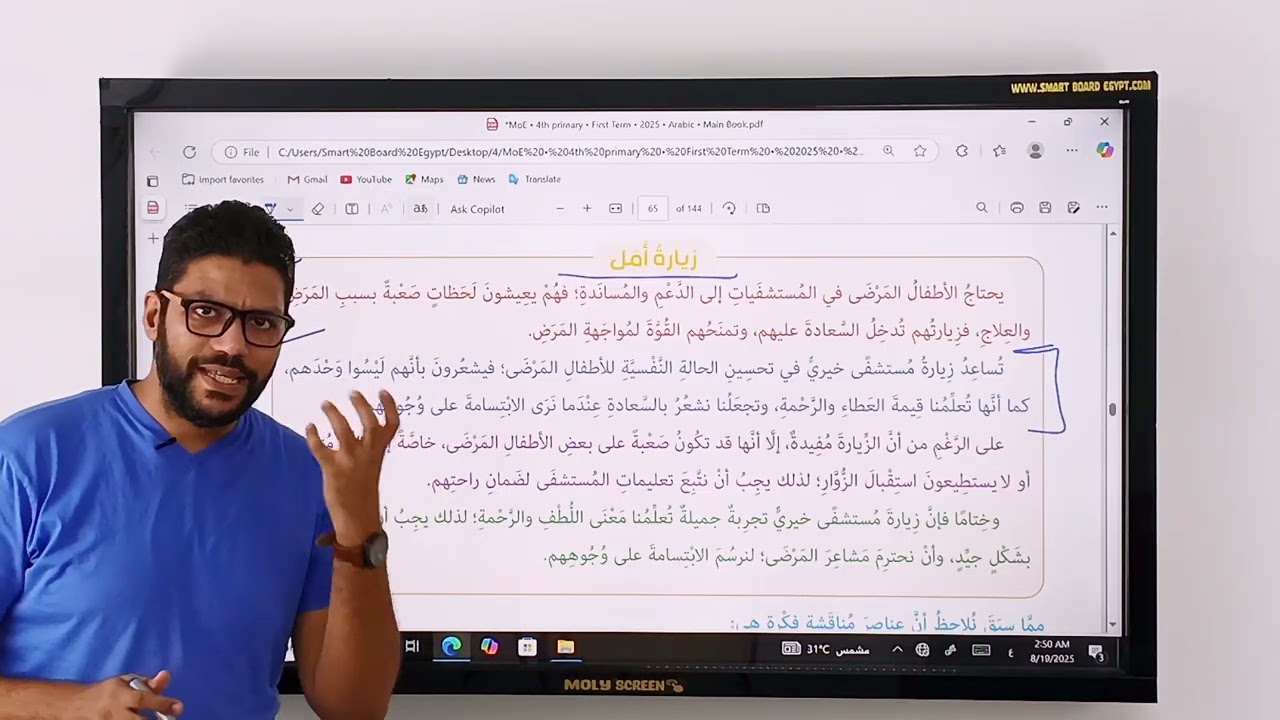 WWW.SMART BOARD EGYPT.COM
*MoE • 4th primary • First Term • 2025 • Arabic • Main Book.pdf
File C:/Users/Smart%20Board%20Egypt/Desktop/4/MoE%20•%204th%20primary%20•%20First%20Term%20•%202025%20•%20Ar...
Import favorites Gmail YouTube Maps News Translate
Ask Copilot 65 of 144
زيارةُ أَمَل
يحتاجُ الأطفالُ المَرْضَى في المُستشفَياتِ إلى الدَّعْمِ والمُساندةِ؛ فهُمْ يعِيشونَ لَحَظاتٍ صَعْبةٌ بسببِ المَرَضِ
والعِلاجِ، فزِيارتُهم تُدخِلُ السَّعادةَ عليهم، وتمنَحُهم القُوَّةَ لمُواجَهةِ المَرَضِ.
تُساعِدُ زِيارةُ مُستشفًى خيريٍّ في تحسِينِ الحالةِ النَّفسيَّةِ للأطفالِ المَرْضَى؛ فيشعُرونَ بأنَّهم لَيْسُوا وَحْدَهم،
كما أنَّها تُعلِّمُنا قِيمةَ العَطاءِ والرَّحْمةِ، وتجعَلُنا نشعُرُ بالسَّعادةِ عِنْدَما نَرَى الابْتِسامةَ على
على الرَّغْمِ من أنَّ الزِّيارةَ مُفِيدةٌ، إلَّا أنَّها قد تكُونُ صَعْبةٌ على بعضِ الأطفالِ المَرْضَى، خاصَّةً
أو لا يستطِيعونَ استِقْبالَ الزُّوَّارِ؛ لذلك يجِبُ أنْ نتَّبِعَ تعليماتِ المُستشفَى لضَمانِ راحتِهم.
وخِتامًا فإنَّ زِيارةَ مُستشفًى خيريٍّ تجرِبةٌ جميلةٌ تُعلِّمُنا مَعْنَى اللُّطْفِ والرَّحْمةِ؛ لذلك يجِبُ
بشَكْلٍ جيِّدٍ، وأنْ نحترِمَ مَشاعِرَ المَرْضَى؛ لنرسُمَ الابْتِسامةَ على وُجُوهِهم.
ممَّا سبَقَ نُلاحِظُ أنَّ عناصِرَ مُناقَشةِ فِكْرةٍ هي:
31°C مشمس ع 2:50 AM
8/19/2025 3
MOLY SCREEN